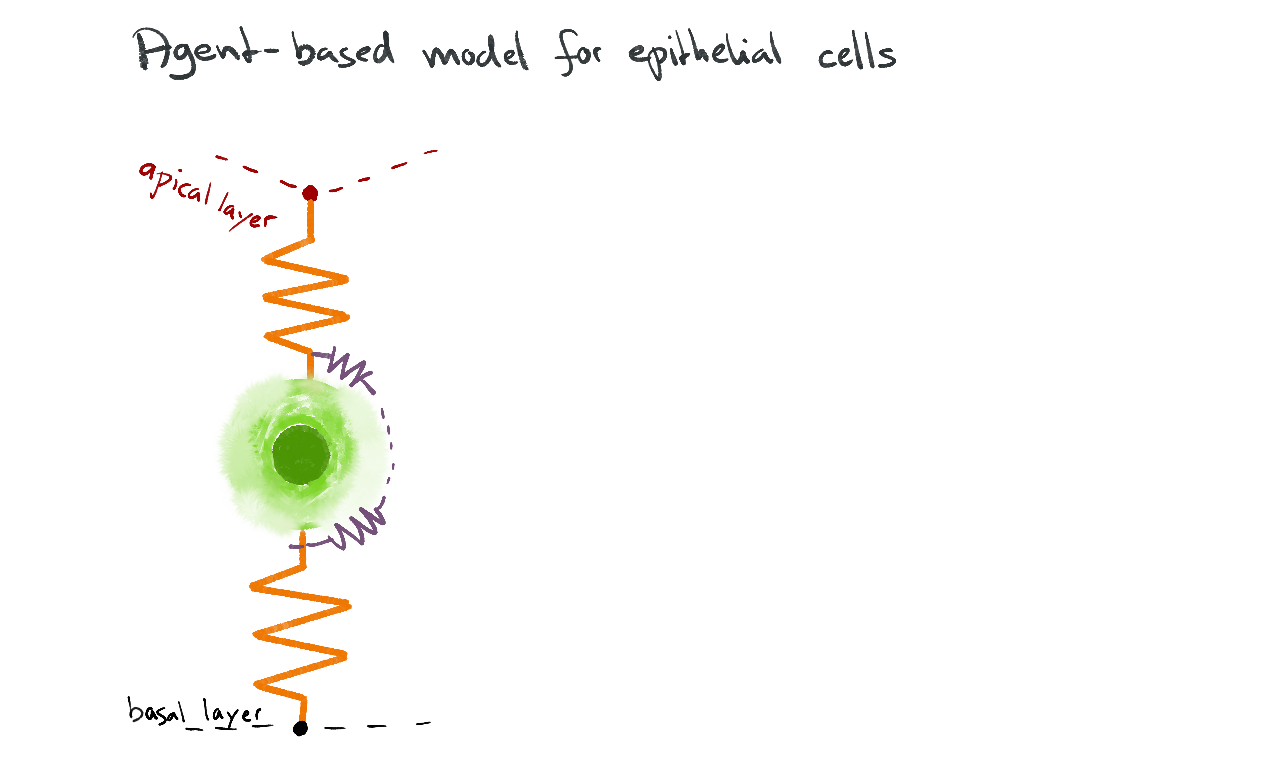 Agent-based model for epithelial cells
apical layer
basal layer